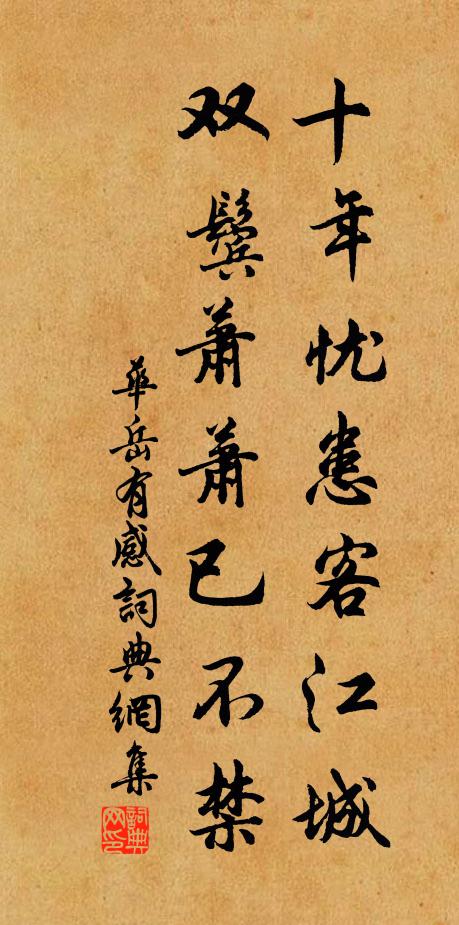 十年忧患客江城
双鬓萧萧已不禁
華岳有感詞典網集
詞典网印